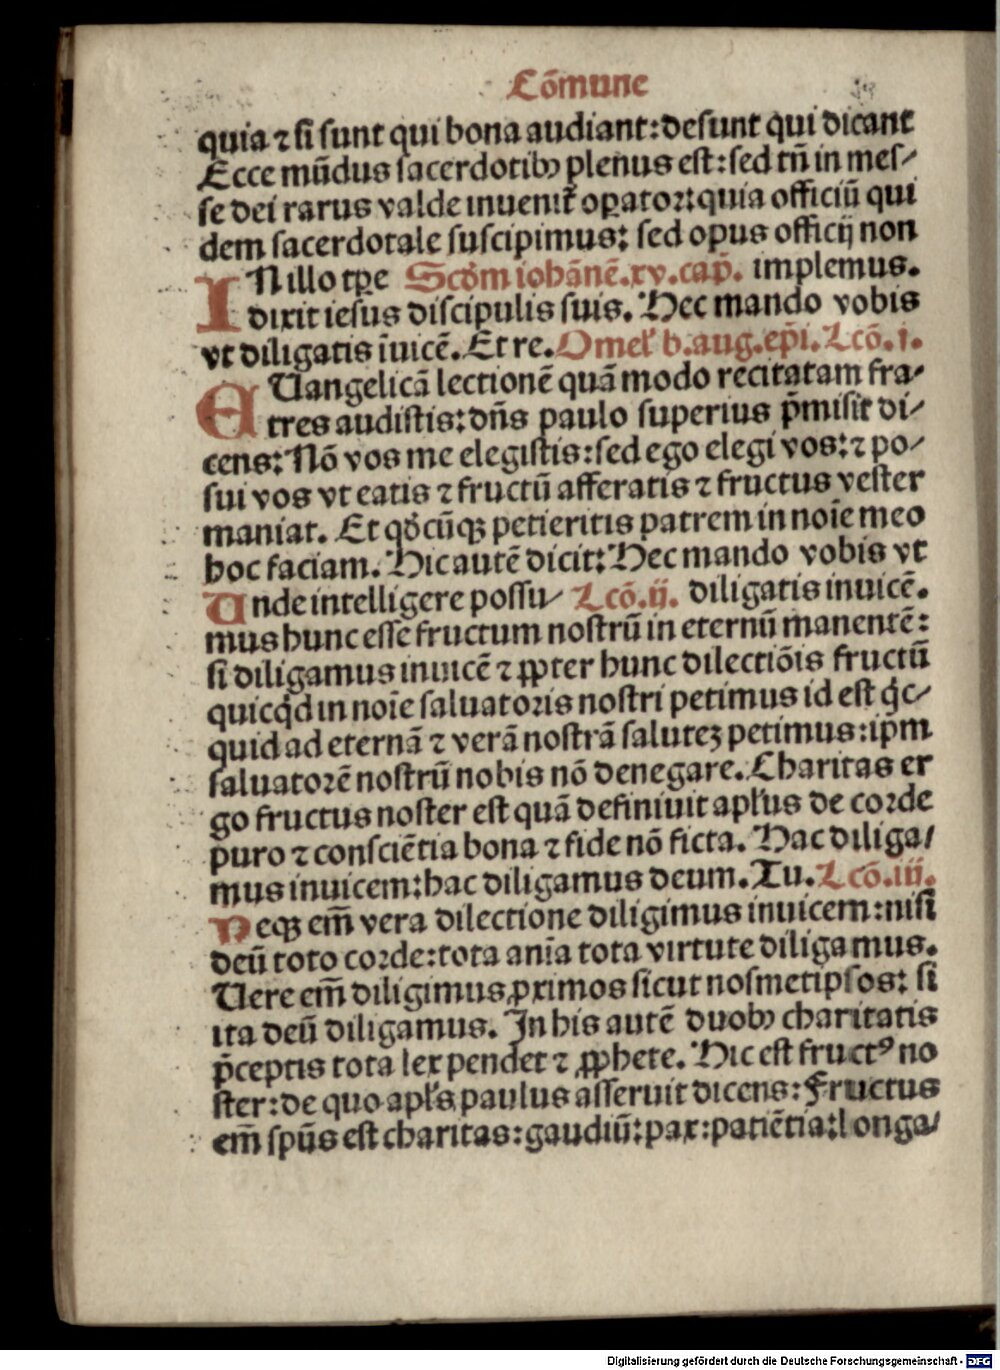 Cōmune
quia ⁊ si sunt qui bona audiant: desunt qui dicant
Ecce mūdus sacerdotibꝰ plenus est: sed tn̄ in mes⸗
se dei rarus valde inuenit̄ oꝑator: quia officiū qui
dem sacerdotale suscipimus: sed opus officij non
INillo tꝑe Scd̓m iohānē.xv.cap̄. implemus.
dixit iesus discipulis suis. Hec mando vobis
vt diligatis īuicē. Et re. Omel̓ b. aug. ep̄i. Lcō. j.
EUangelicā lectionē quā modo recitatam fra⸗
tres audistis: dn̄s paulo superius p̄misit di⸗
cens: Nō vos me elegistis: sed ego elegi vos: ⁊ po⸗
sui vos vt eatis ⁊ fructū afferatis ⁊ fructus vester
maniat. Et qd̓cūqꝫ petieritis patrem in noīe meo
hoc faciam. Hic autē dicit: Hec mando vobis vt
Unde intelligere possu⸗ Lcō. ij. diligatis inuicē.
mus hunc esse fructum nostrū in eternū manentē:
si diligamus inuicē ⁊ ꝓpter hunc dilectiōis fructū
quicq̇d in noīe saluatoris nostri petimus id est q̇c⸗
quid ad eternā ⁊ verā nostrā saluteꝫ petimus: ip̄m
saluatorē nostrū nobis nō denegare. Charitas er
go fructus noster est quā definiuit apl̓us de corde
puro ⁊ consciētia bona ⁊ fide nō ficta. Hac diliga⸗
mus inuicem: hac diligamus deum. Tu. Lcō. iij.
Neqꝫ em̄ vera dilectione diligimus inuicem: nisi
deū toto corde: tota anīa tota virtute diligamus.
Uere em̄ diligimus ꝓximos sicut nosmetipsos: si
ita deū diligamus. In his autē duobꝰ charitatis
p̄ceptis tota lex pendet ⁊ ꝓphete. Hic est fructꝰ no
ster: de quo apl̓s paulus asseruit dicens: Fructus
em̄ spūs est charitas: gaudiū: pax: patiētia: longa⸗
Digitalisierung gefördert durch die Deutsche Forschungsgemeinschaft - DFG